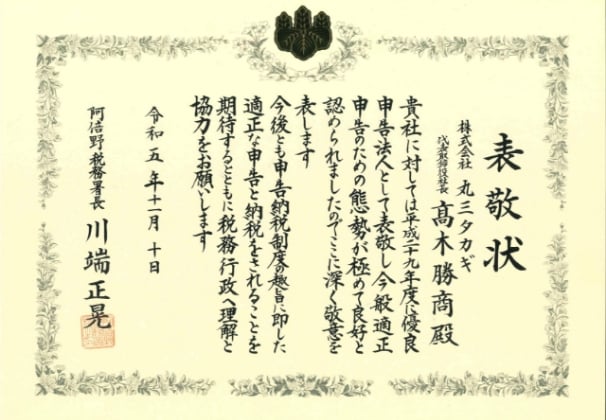 表敬状
株式会社 丸三タカギ
代表取締役社長 髙木勝商殿
貴社に対しては平成二十九年度に優良
申告法人として表敬し今般適正
申告のための態勢が極めて良好と
認められましたのでここに深く敬意を
表します
今後とも申告納税制度の趣旨に即した
適正な申告と納税をされることを
期待するとともに税務行政へ理解と
協力をお願いします
令和五年十一月十日
阿倍野税務署長 川端正晃